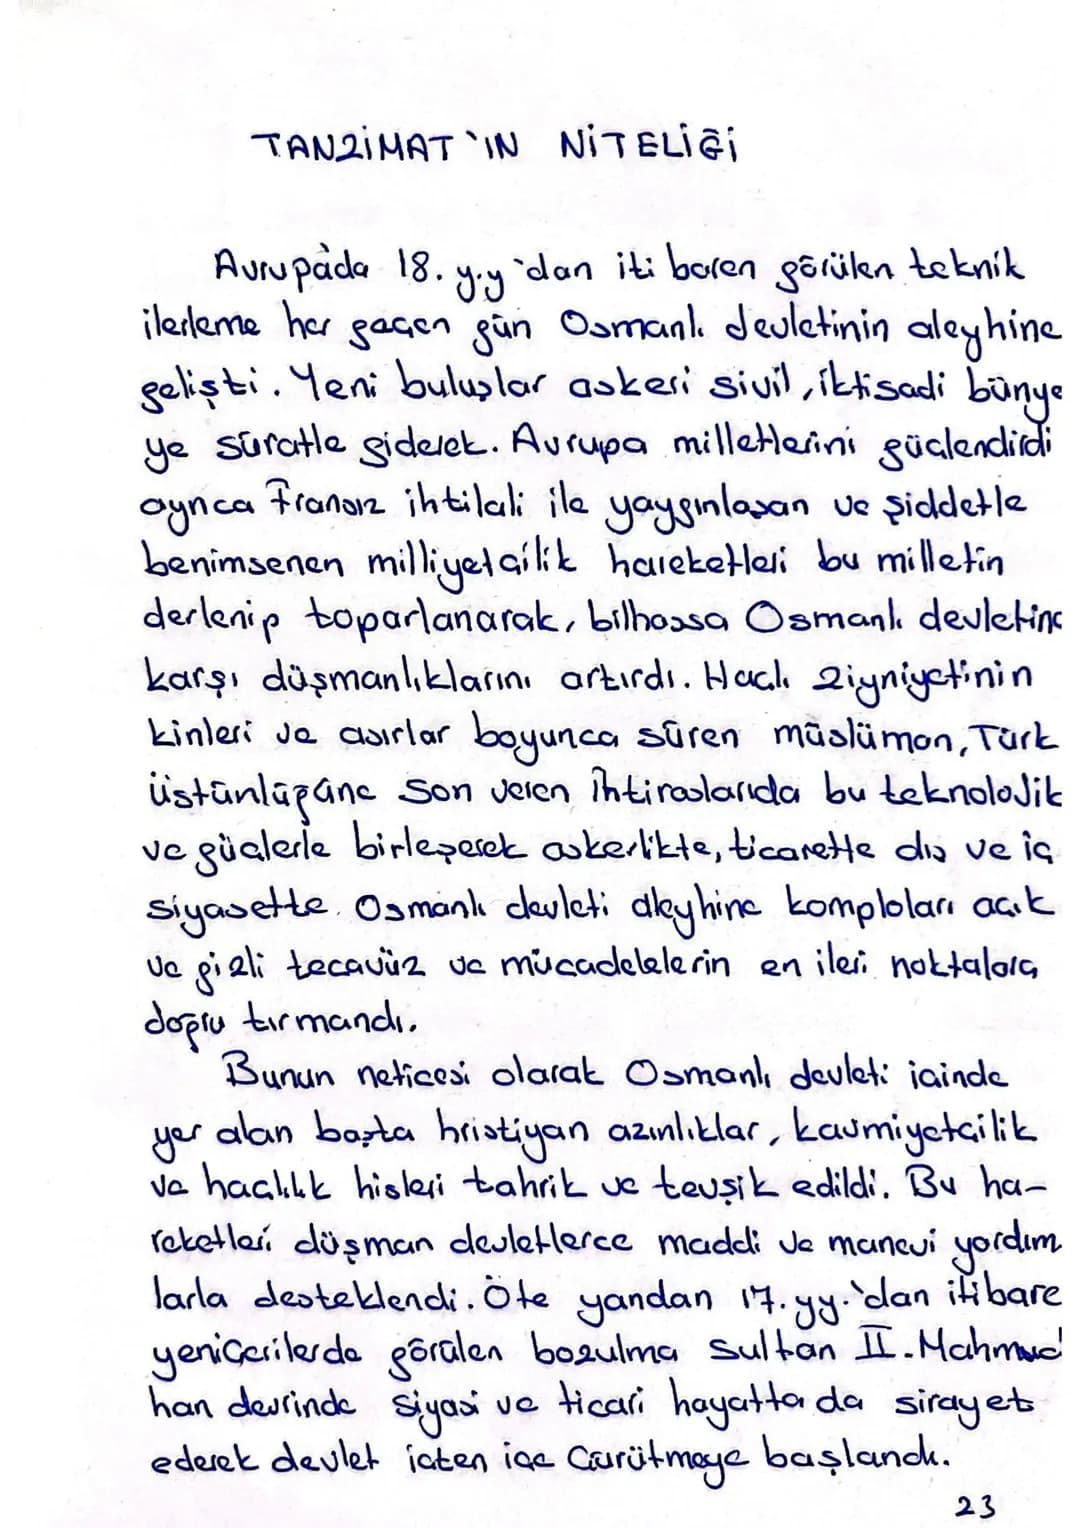 TANZİMAT'IN NİTELİĞİ
Avrupa'da 18. y.y'dan iti baren görülen teknik
ilerleme her geçen gün Osmanlı devletinin aleyhine
gelişti. Yeni buluşlar askeri sivil, iktisadi bünye
ye süratle giderek. Avrupa milletlerini güçlendirdi
ayrıca Fransız ihtilali ile yaygınlaşan ve şiddetle
benimsenen milliyetçilik hareketleri bu milletin
derlenip toparlanarak, bilhassa Osmanlı devletine
karşı düşmanlıklarını artırdı. Haçlı ziyniyetinin
kinleri ve asırlar boyunca süren müslüman, Türk
üstünlüğüne son veren ihtiraslarıda bu teknolojik
ve güçlerle birleşerek askerlikte, ticarette dış ve iç
siyasette. Osmanlı devleti aleyhine komploları açık
ve gizli tecavüz ve mücadelelerin en ileri noktalara
doğru tırmandı.
Bunun neticesi olarak Osmanlı devleti içinde
yer alan başta hristiyan azınlıklar, kavmiyetçilik
ve haçlılık hisleri tahrik ve tevşik edildi. Bu ha-
reketleri düşman devletlerce maddi ve manevi yardım
larla desteklendi. Öte yandan 17. yy.'dan itibare
yeniçerilerde görülen bozulma Sultan II. Mahmud
han devrinde siyasi ve ticari hayatta da sirayet
ederek devlet içten içe çürütmeye başlandı.
23